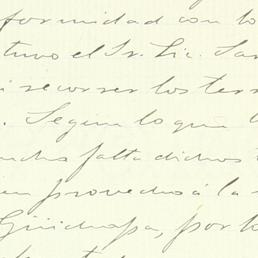 formidad con lo
tuvo el Sr. Lic. Sar
i recorrer los terr
. Segun lo que
ucha falta dichos
ien provechos á la
Güichapa, por lo